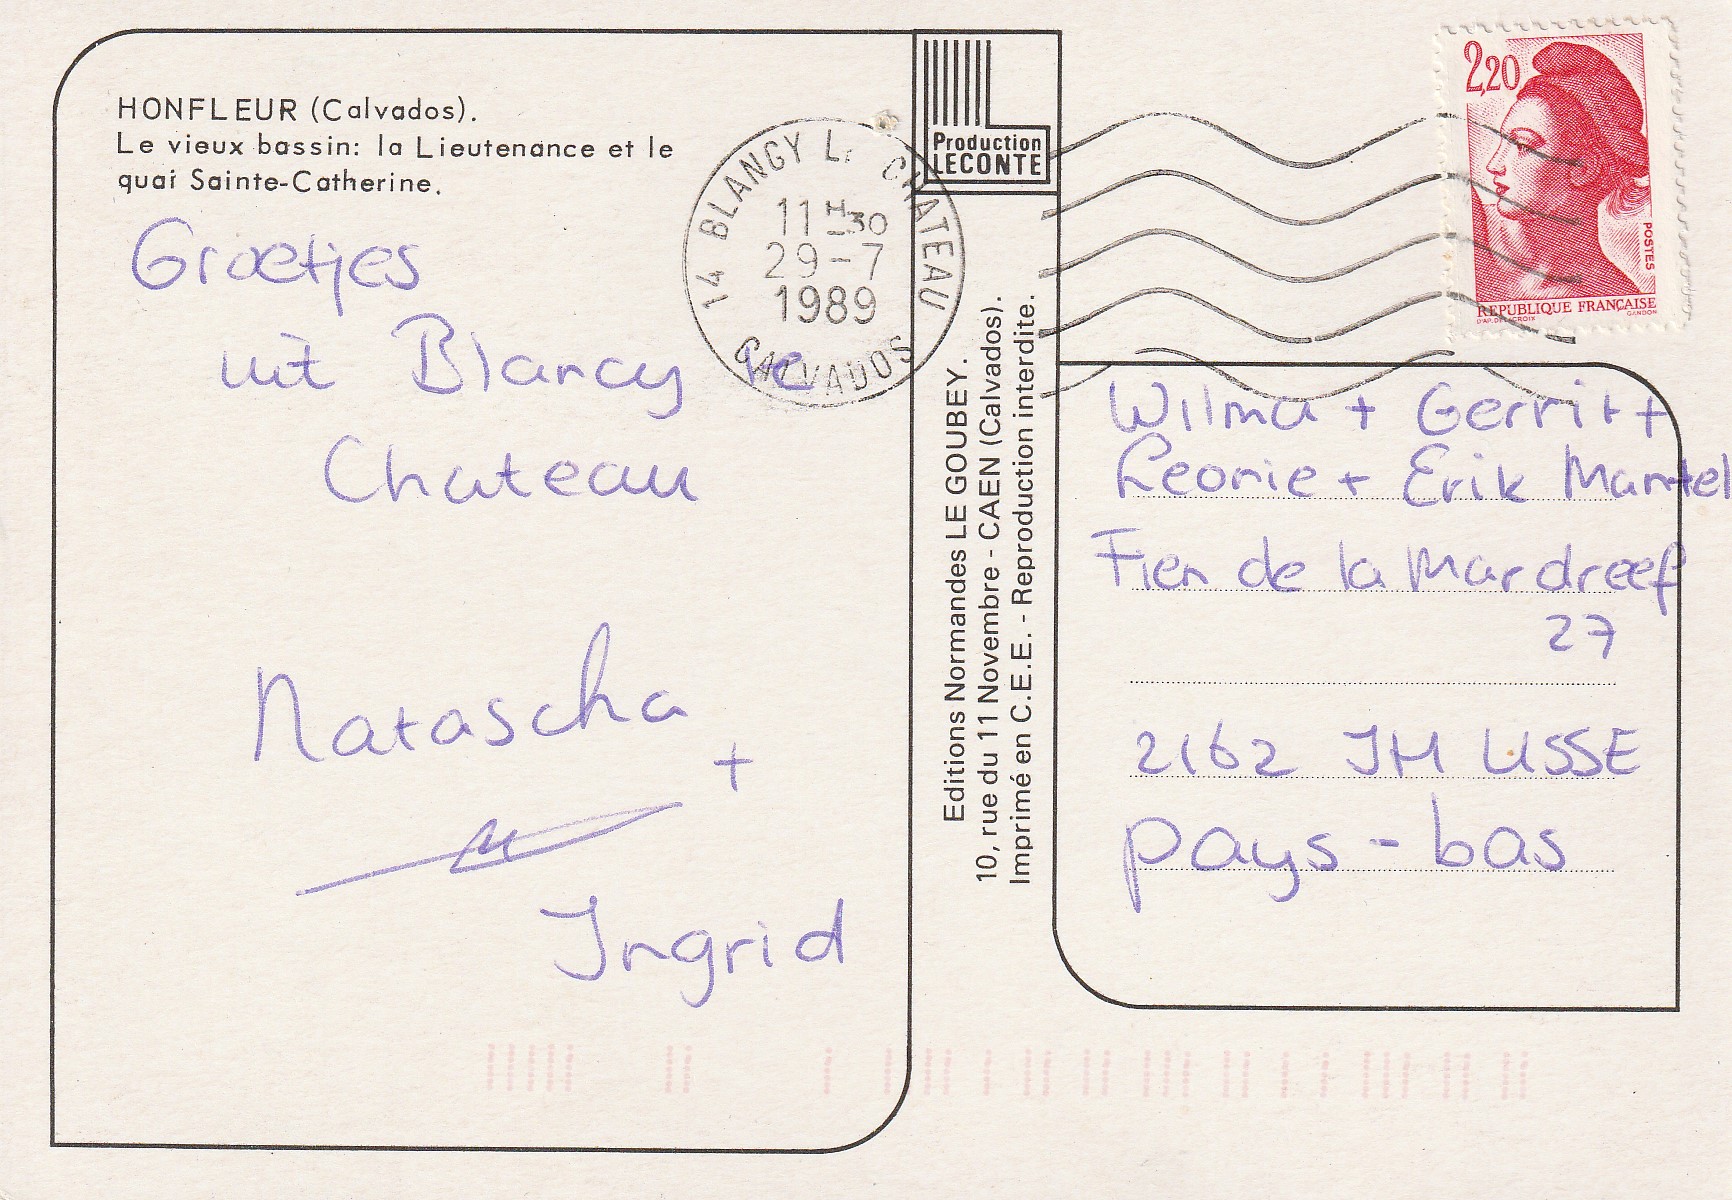 HONFLEUR (Calvados).
Le vieux bassin: la Lieutenance et le
quai Sainte-Catherine.
Groetjes
uit Blancy le
Chateau
Natascha
+
Ingrid
14 BLANGY LE CHATEAU
11 H 30
29-7
1989
CALVADOS
Production
LECONTE
Editions Normandes LE GOUBEY.
10, rue du 11 Novembre - CAEN (Calvados).
Imprimé en C.E.E. - Reproduction interdite.
2,20
POSTES
REPUBLIQUE FRANÇAISE
D'AP. DELACROIX
GANDON
Wilma + Gerrit +
Leonie + Erik Mantel
Fien de la Mardreef
27
2162 JM LISSE
pays-bas